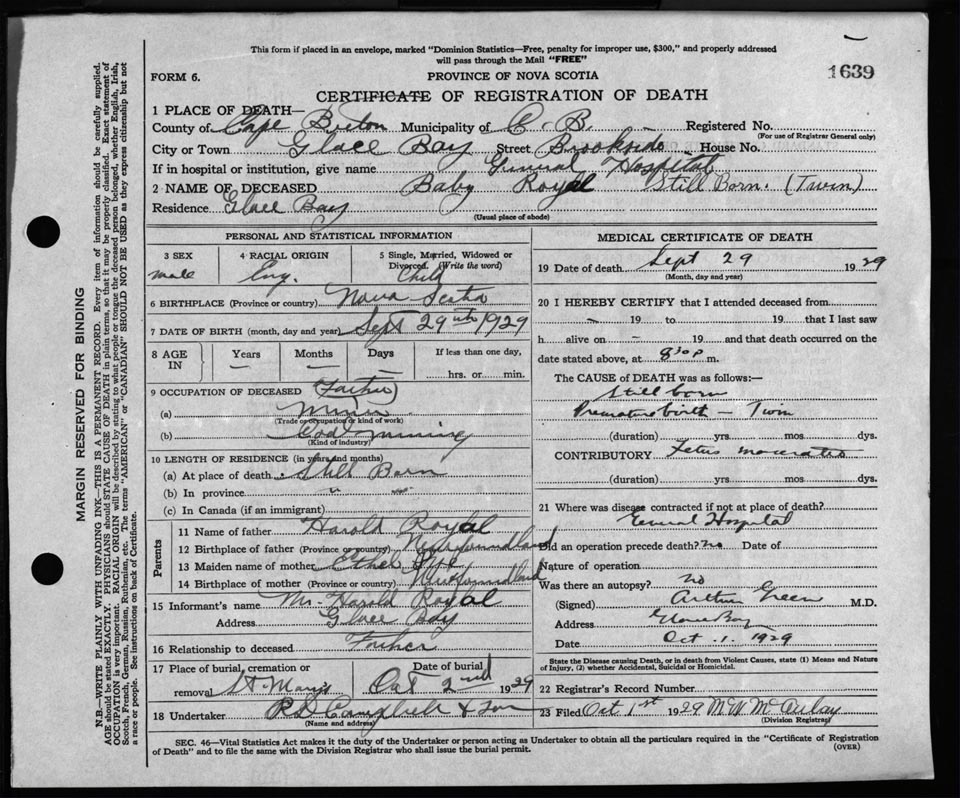 This form if placed in an envelope, marked "Dominion Statistics—Free, penalty for improper use, $300," and properly addressed
will pass through the Mail "FREE"
FORM 6.
PROVINCE OF NOVA SCOTIA
1639
CERTIFICATE OF REGISTRATION OF DEATH
1 PLACE OF DEATH—
County of Cape Breton Municipality of C. B. Registered No.
(For use of Registrar General only)
City or Town Glace Bay Street Brookside House No.
If in hospital or institution, give name General Hospital
2 NAME OF DECEASED Baby Royal Still Born. (Twin)
Residence Glace Bay
(Usual place of abode)
PERSONAL AND STATISTICAL INFORMATION
3 SEX male
4 RACIAL ORIGIN Eng.
5 Single, Married, Widowed or Divorced. (Write the word) Child
6 BIRTHPLACE (Province or country) Nova Scotia
7 DATE OF BIRTH (month, day and year) Sept 29th 1929
8 AGE IN Years — Months — Days — If less than one day, hrs. or min.
9 OCCUPATION OF DECEASED (Father)
(a) Miner
(Trade or occupation or kind of work)
(b) Coal mining
(Kind of industry)
10 LENGTH OF RESIDENCE (in years and months)
(a) At place of death Still Born
(b) In province " "
(c) In Canada (if an immigrant)
Parents
11 Name of father Harold Royal
12 Birthplace of father (Province or country) Newfoundland
13 Maiden name of mother Ethel
14 Birthplace of mother (Province or country) Newfoundland
15 Informant's name Mr. Harold Royal
Address Glace Bay
16 Relationship to deceased Father
17 Place of burial, cremation or removal St Marys Date of burial Oct 2nd 1929
18 Undertaker Campbell & Son
(Name and address)
MEDICAL CERTIFICATE OF DEATH
19 Date of death Sept 29 1929
(Month, day and year)
20 I HEREBY CERTIFY that I attended deceased from
– 19 to 19 that I last saw
h alive on – 19 and that death occurred on the
date stated above, at 8 30 p m.
The CAUSE of DEATH was as follows:—
Still born
Premature birth – Twin
(duration) yrs mos dys.
CONTRIBUTORY Fetus macerated
(duration) yrs mos dys.
21 Where was disease contracted if not at place of death?
General Hospital
Did an operation precede death? no Date of
Nature of operation
Was there an autopsy? no
(Signed) Arthur Green M.D.
Address Glace Bay
Date Oct. 1. 1929
State the Disease causing Death, or in death from Violent Causes, state (1) Means and Nature
of Injury, (2) whether Accidental, Suicidal or Homicidal.
22 Registrar's Record Number
23 Filed Oct 1st 1929 McAulay
(Division Registrar)
SEC. 46—Vital Statistics Act makes it the duty of the Undertaker or person acting as Undertaker to obtain all the particulars required in the "Certificate of Registration
of Death" and to file the same with the Division Registrar who shall issue the burial permit.
(OVER)
MARGIN RESERVED FOR BINDING
N.B.—WRITE PLAINLY WITH UNFADING INK—THIS IS A PERMANENT RECORD. Every item of information should be carefully supplied.
AGE should be stated EXACTLY. PHYSICIANS should STATE CAUSE OF DEATH in plain terms, so that it may be properly classified. Exact statement of
OCCUPATION is very important. RACIAL ORIGIN will be described by stating to what people or tongue the deceased person belonged, whether English, Irish,
Scotch, French, German, Russian, Ruthenian, etc. The terms "AMERICAN" or "CANADIAN" SHOULD NOT BE USED as they express citizenship but not
a race or people. See instructions on back of Certificate.